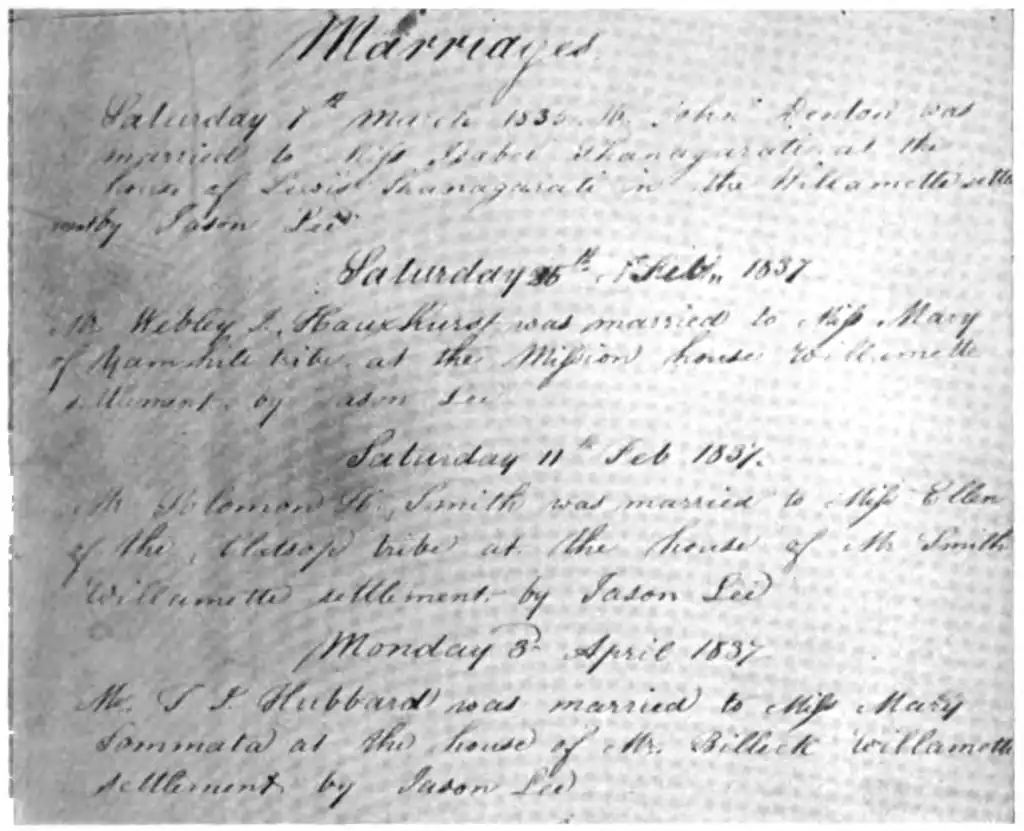 Marriages
Saturday 7th March 1835 Mr John Denton was
married to Miss Isabel Shanagarati at the
house of Lewis Shanagarati in the Willamette settle
ment by Jason Lee
Saturday 25th Feb. 1837
Mr Webley J. Hauxhurst was married to Miss Mary
of Yamhill tribe at the Mission house Willamette
settlement by Jason Lee
Saturday 11th Feb 1837.
Mr Solomon H. Smith was married to Miss Ellen
of the Clatsop tribe at the house of Mr Smith
Willamette settlement by Jason Lee
Monday 3d April 1837
Mr. T J Hubbard was married to Miss Mary
Sommata at the house of Mr. Billeck Willamette
settlement by Jason Lee